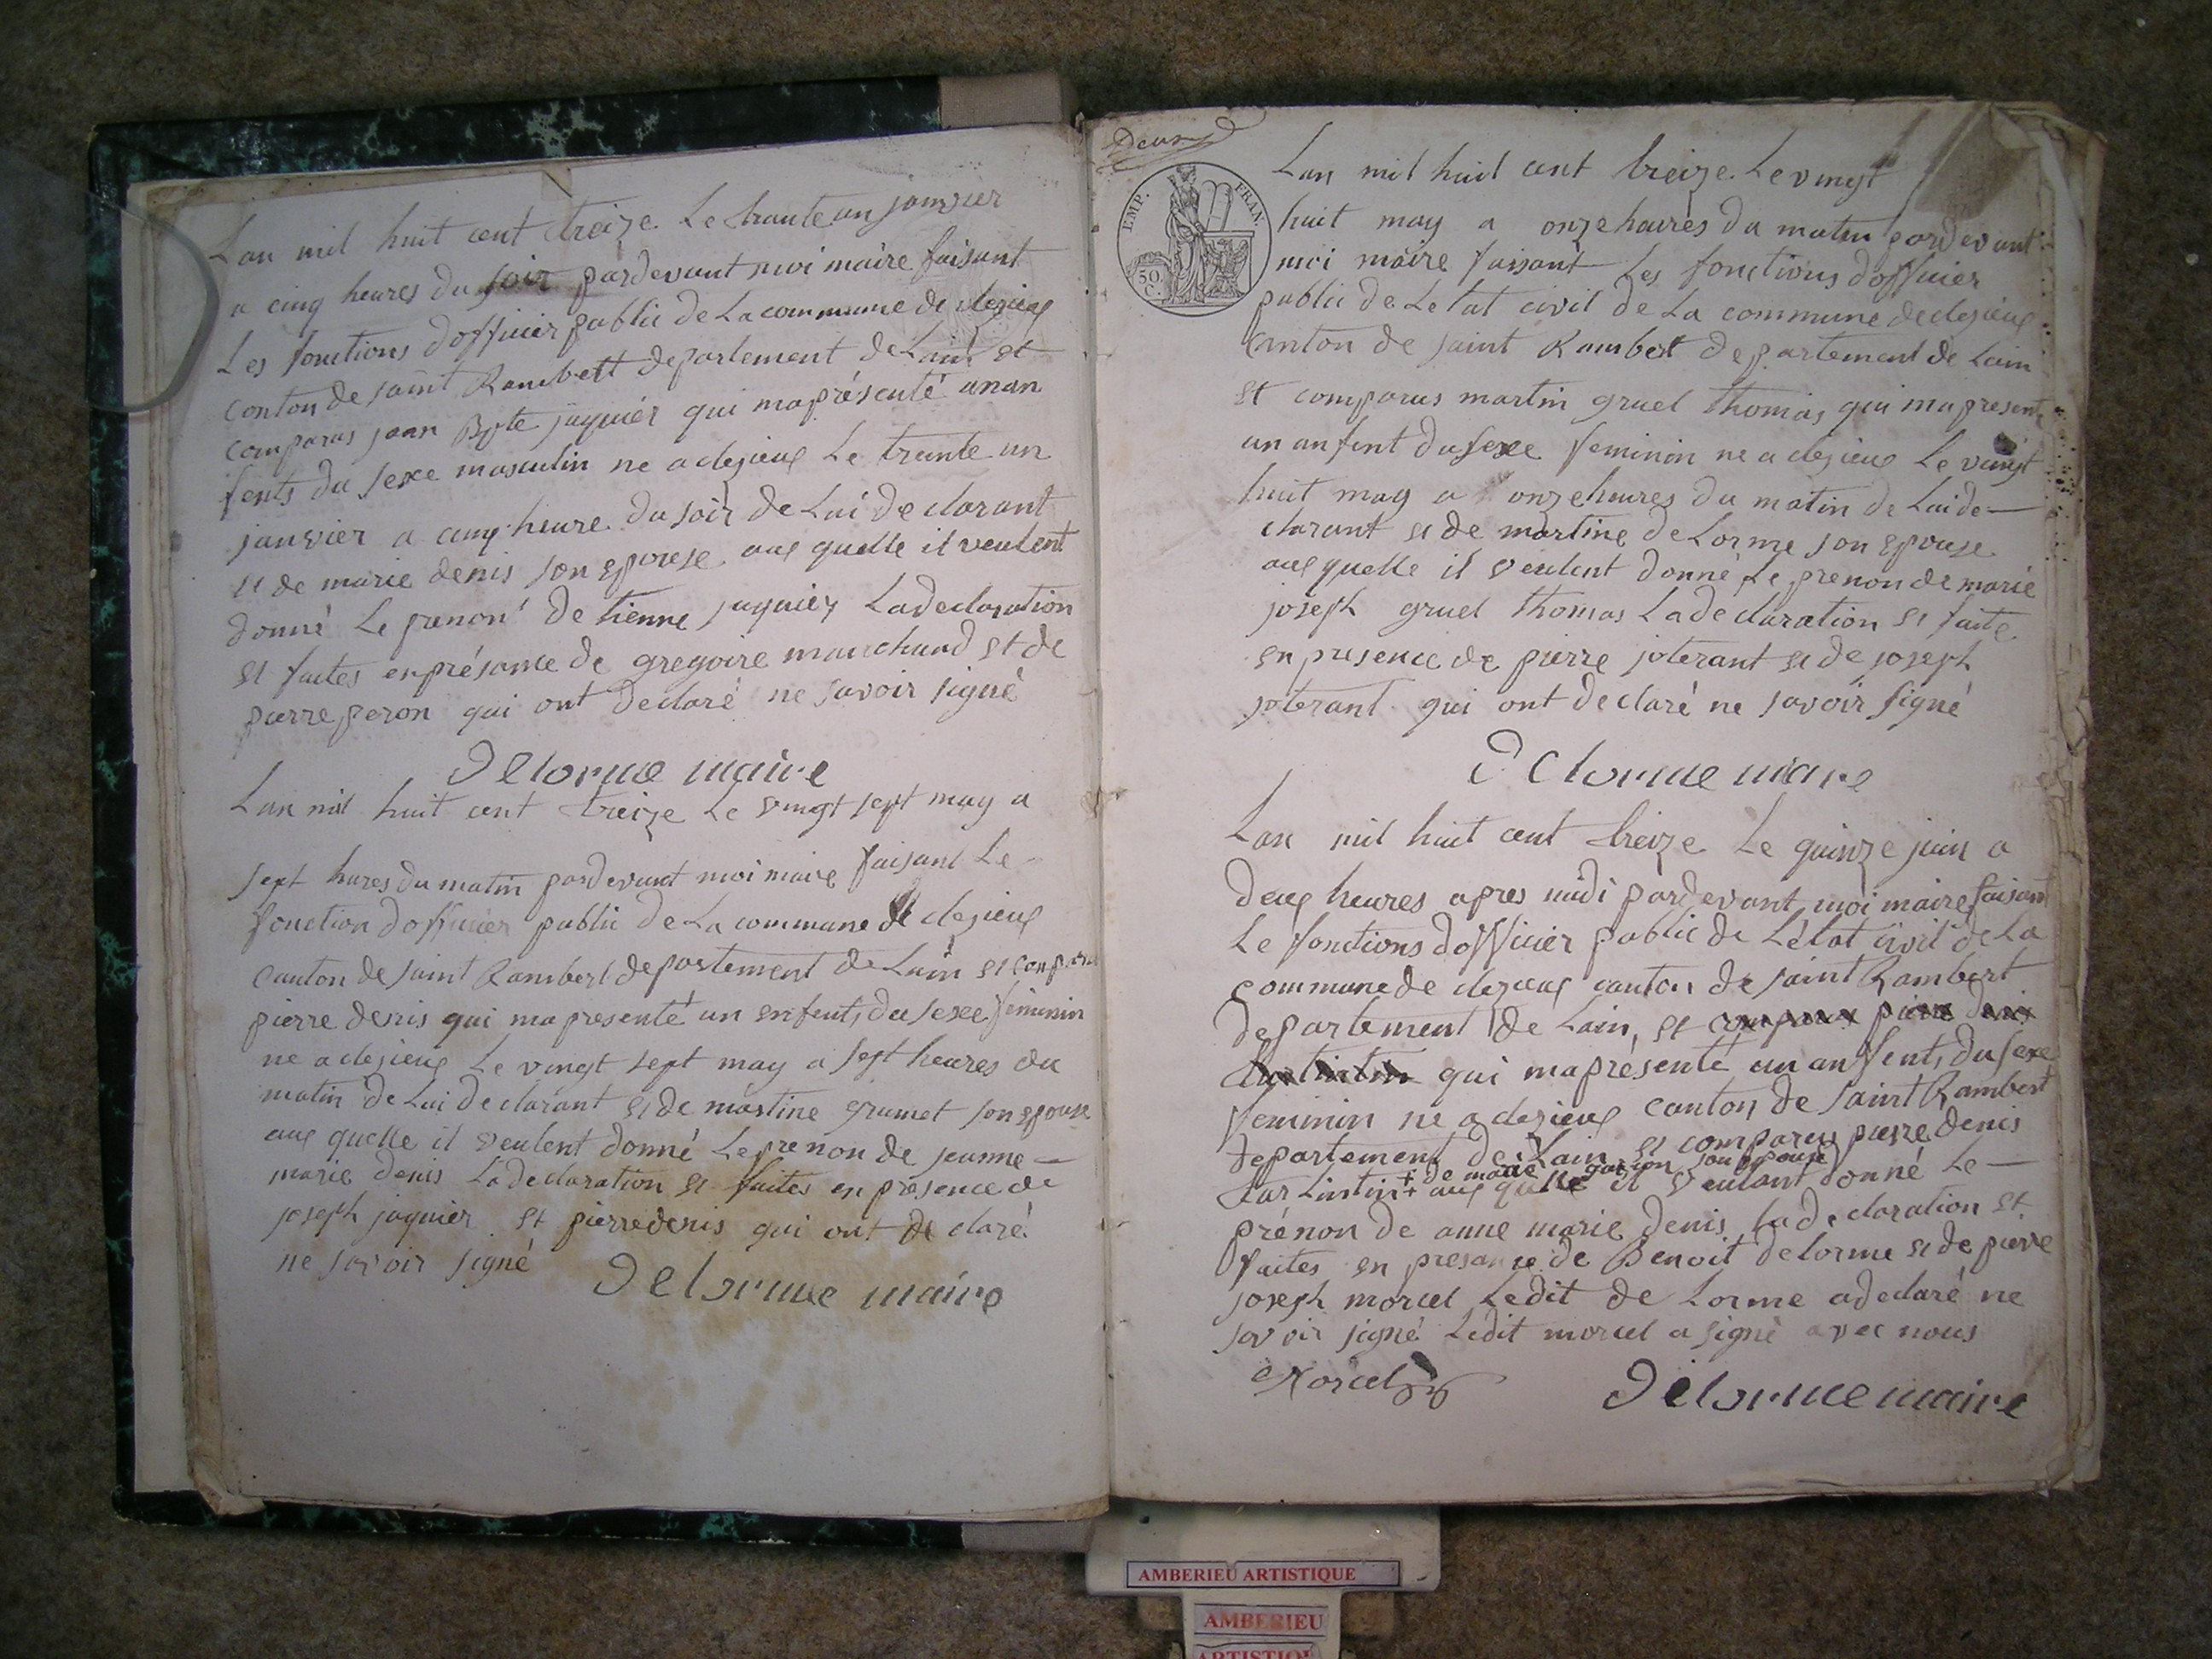 Lan mil huit cent treize Le trante un janvier
a cinq heures du soir pardevant moi maire faisant
Les fonctions dofficier public de La commune de clezieux
conton de saint Rambert departement de Lain et
comparus jean Bpte jaquier qui ma présenté un an
fents du sexe masculin ne a clezieux Le trente un
janvier a cinq heure du soir de Lui declarant
et de marie denis son epouse aux quelle il veulent
donné Le prenon de tienne jaquier La declaration
et faites en présance de gregoire marchand et de
pierre peron qui ont declaré ne savoir signé
Delorme maire
Lan mil huit cent treize Le vingt sept may a
sept hures du matin pardevant moi maire faisant Le
fonction dofficier public de La commune de clezieux
canton de saint Rambert departement de Lain et
pierre denis qui ma presenté un enfent du sexe feminin
ne a clezieux Le vingt sept may a sept heures du
matin de Lui declarant et de martine grumet son epouse
aux quelle il veulent donné Le prenon de jeanne
marie denis La declaration et faites en présence de
joseph jaquier et pierre denis qui ont de claré
ne savoir signé
Delorme maire
Deux
EMP. FRAN.
50 C.
Lan mil huit cent treize Le vingt
huit may a onze heures du matin pardevant
moi maire faisant Les fonctions dofficier
public de Letat civil de La commune de clezieux
canton de saint Rambert departement de Lain
et comparus martin gruel thomas qui ma presente
un anfent du sexe feminin ne a clezieux Le vingt
huit may a onze heures du matin de Lui de
clarant et de martine deLorme son epouse
aux quelle il veulent donné Le prenon de marie
joseph gruel thomas La declaration et faite
en presence de pierre joterant et de joseph
joterant qui ont declaré ne savoir signé
Delorme maire
Lan mil huit cent treize Le quinze juin a
deux heures apres midi pardevant moi maire faisant
Le fonctions dofficier public de Létat civil de La
commune de clezieux canton de saint Rambert
departement de Lain, et comparus pierre denis
qui ma présenté un anfent, du sexe
feminin ne a clezieux canton de saint Rambert
departement de Lain et comparus pierre denis
+ de marie son epouse
+ aux quelle il veulent donné Le
prénon de anne marie denis La declaration et
faites en presance de Benoit delorme et de pierre
joseph morcel Ledit de Lorme a declaré ne
savoir signé Ledit morcel a signé avec nous
Morcel
Delorme maire
AMBERIEU ARTISTIQUE
AMBERIEU
ARTISTIQUE